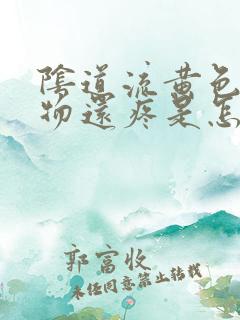 陰道流黃色
物還疼是怎
郭富收
未任同意禁止转载